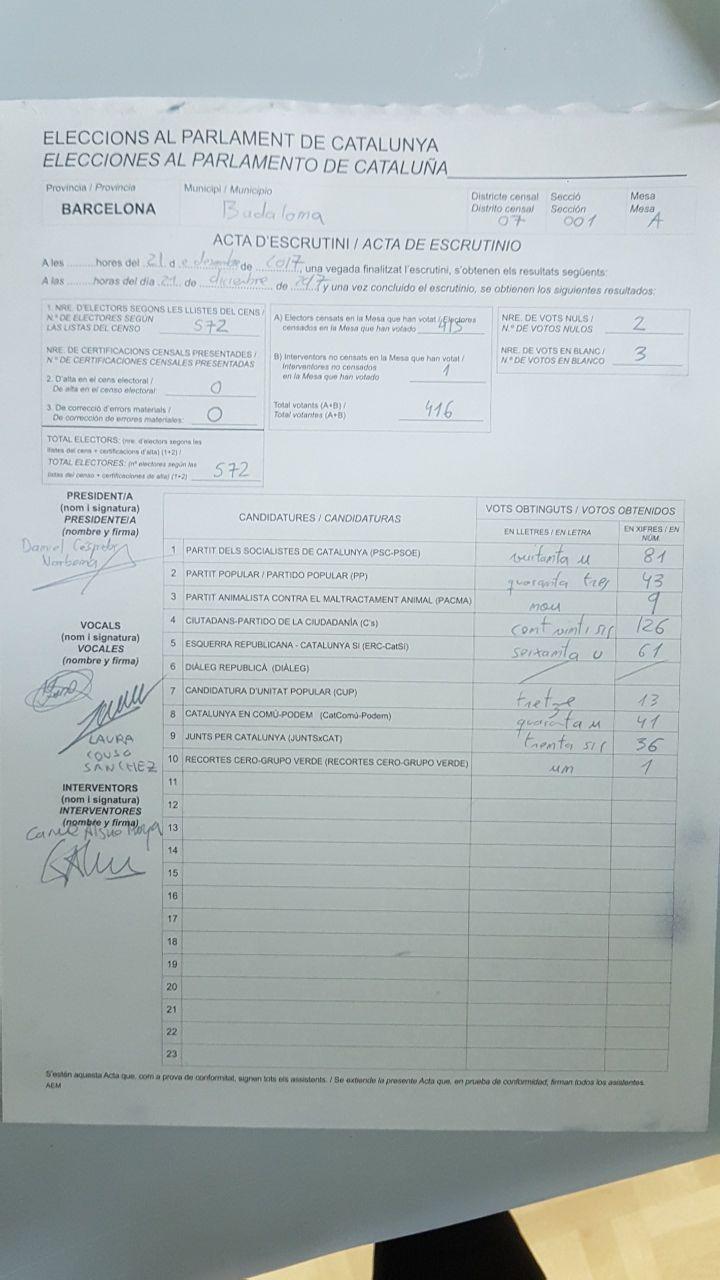 ELECCIONS AL PARLAMENT DE CATALUNYA
ELECCIONES AL PARLAMENTO DE CATALUÑA
Província / Provincia
BARCELONA
Municipi / Municipio
Badalona
Districte censal
Distrito censal
07
Secció
Sección
001
Mesa
Mesa
A
ACTA D'ESCRUTINI / ACTA DE ESCRUTINIO
A les ......... hores del 21 de desembre de 2017, una vegada finalitzat l'escrutini, s'obtenen els resultats següents:
A las ......... horas del día 21 de diciembre de 2017 y una vez concluido el escrutinio, se obtienen los siguientes resultados:
1. NRE. D'ELECTORS SEGONS LES LLISTES DEL CENS /
N.º DE ELECTORES SEGÚN
LAS LISTAS DEL CENSO 572
NRE. DE CERTIFICACIONS CENSALS PRESENTADES /
N.º DE CERTIFICACIONES CENSALES PRESENTADAS
2. D'alta en el cens electoral /
De alta en el censo electoral: 0
3. De correcció d'errors materials /
De corrección de errores materiales: 0
TOTAL ELECTORS: (nre. d'electors segons les
llistes del cens + certificacions d'alta) (1+2) /
TOTAL ELECTORES: (nº electores según las
listas del censo + certificaciones de alta) (1+2) 572
A) Electors censats en la Mesa que han votat / Electores
censados en la Mesa que han votado 415
B) Interventors no censats en la Mesa que han votat /
Interventores no censados
en la Mesa que han votado 1
Total votants (A+B) /
Total votantes (A+B) 416
NRE. DE VOTS NULS /
N.º DE VOTOS NULOS 2
NRE. DE VOTS EN BLANC /
N.º DE VOTOS EN BLANCO 3
PRESIDENT/A
(nom i signatura)
PRESIDENTE/A
(nombre y firma)
Daniel
VOCALS
(nom i signatura)
VOCALES
(nombre y firma)
LAURA
COUSO
SANCHEZ
INTERVENTORS
(nom i signatura)
INTERVENTORES
(nombre y firma)
CANDIDATURES / CANDIDATURAS
VOTS OBTINGUTS / VOTOS OBTENIDOS
EN LLETRES / EN LETRA
EN XIFRES / EN NÚM.
1 PARTIT DELS SOCIALISTES DE CATALUNYA (PSC-PSOE) vuitanta u 81
2 PARTIT POPULAR / PARTIDO POPULAR (PP) quaranta tres 43
3 PARTIT ANIMALISTA CONTRA EL MALTRACTAMENT ANIMAL (PACMA) nou 9
4 CIUTADANS-PARTIDO DE LA CIUDADANÍA (C's) cent vint i sis 126
5 ESQUERRA REPUBLICANA - CATALUNYA SÍ (ERC-CatSí) seixanta u 61
6 DIÀLEG REPUBLICÀ (DIÀLEG)
7 CANDIDATURA D'UNITAT POPULAR (CUP) tretze 13
8 CATALUNYA EN COMÚ-PODEM (CatComú-Podem) quaranta u 41
9 JUNTS PER CATALUNYA (JUNTSxCAT) trenta sis 36
10 RECORTES CERO-GRUPO VERDE (RECORTES CERO-GRUPO VERDE) un 1
11
12
13
14
15
16
17
18
19
20
21
22
23
S'estén aquesta Acta que, com a prova de conformitat, signen tots els assistents. / Se extiende la presente Acta que, en prueba de conformidad, firman todos los asistentes.
AEM